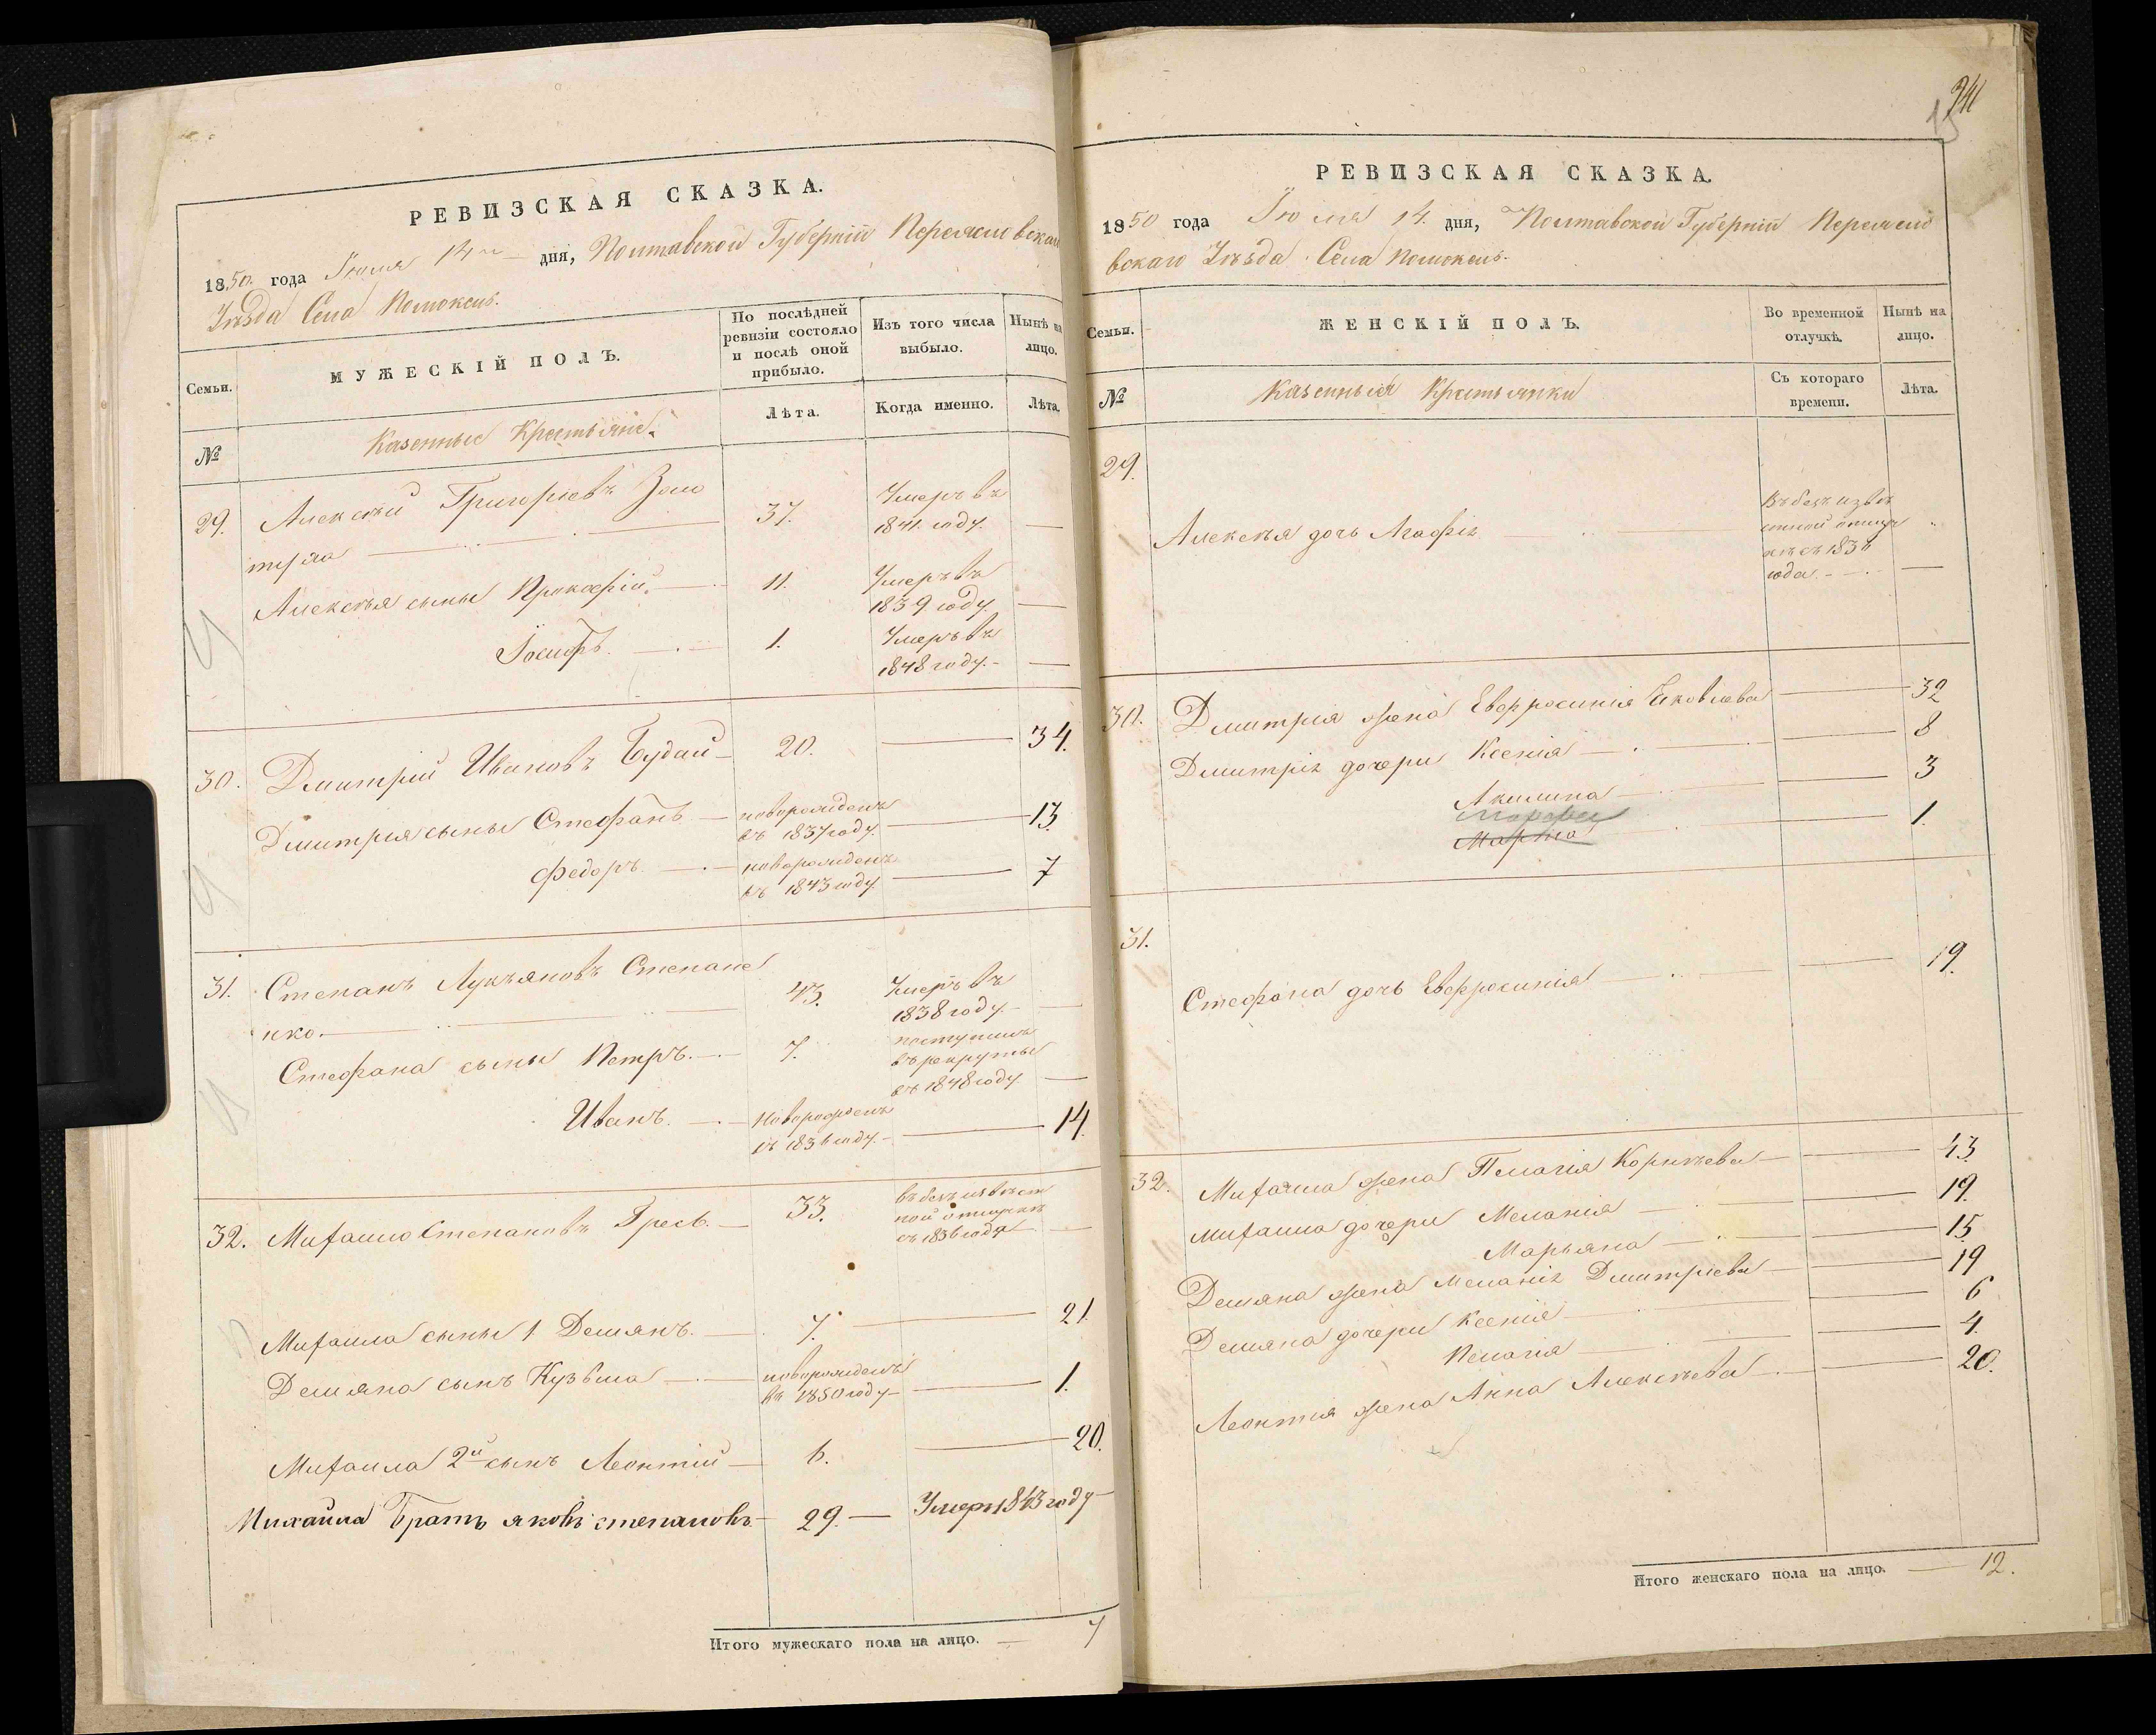 РЕВИЗСКАЯ СКАЗКА.
1850. года Іюля 14 дня, Полтавской Губерніи Переяславскаго
Уѣзда Села Помоклей.
Семьи.
МУЖЕСКІЙ ПОЛЪ.
По послѣдней ревизіи состояло и послѣ оной прибыло.
Изъ того числа выбыло.
Нынѣ на лицо.
№
Казенные Крестьяне.
Лѣта.
Когда именно.
Лѣта.
29. Алексѣй Григоріевъ Золо
тура 37. Умеръ въ 1841. году.
Алексѣя сыны Прокофій. 11. Умеръ въ 1839 году.
Іосифъ. 1. Умеръ въ 1848 году.
30. Дмитрій Ивановъ Будай 20. 34.
Дмитрія сыны Стефанъ новорожденъ въ 1837 году. 13.
Федоръ. новорожденъ въ 1843 году 7
31. Степанъ Лукьяновъ Степане
нко. 43. Умеръ въ 1838 году.
Стефана сыны Петръ. 7. поступилъ въ рекруты въ 1848 году
Иванъ. Новорожденъ въ 1836 году. 14.
32. Михайло Степановъ Гресь. 33. въ безъизвѣстной отлучкѣ съ 1836 года
Михайла сыны 1 Демянъ. 7. 21
Демяна сынъ Кузьма новорожденъ въ 1850 году 1.
Михайла 2й сынъ Леонтій 6. 20.
Михайла Братъ яковъ степановъ 29. Умеръ 1843 году
Итого мужескаго пола на лицо. 7
РЕВИЗСКАЯ СКАЗКА.
1850 года Іюля 14. дня, Полтавской Губерніи Переясло
вскаго Уѣзда Села Помоклей.
Семьи.
ЖЕНСКІЙ ПОЛЪ.
Во временной отлучкѣ.
Нынѣ на лицо.
№
Казенныя Крестьянки
Съ котораго времени.
Лѣта.
29.
Алексѣя дочь Агафія Въ безъизвѣстной отлучкѣ съ года.
30. Дмитрія жена Евфросинія Яковлева 32
Дмитрія дочери Ксенія 8
Акилина 3
Марфа 1.
31.
Стефана дочь Евфросинія 19.
32. Михайла жена Пелагія Корнѣева 43
Михайла дочери Меланія 19.
Марьяна 15
Демяна жена Меланія Дмитріева 19
Демяна дочери Ксенія 6
Пелагія 4.
Леонтія жена Анна Алексѣева 20.
Итого женскаго пола на лицо. 12.